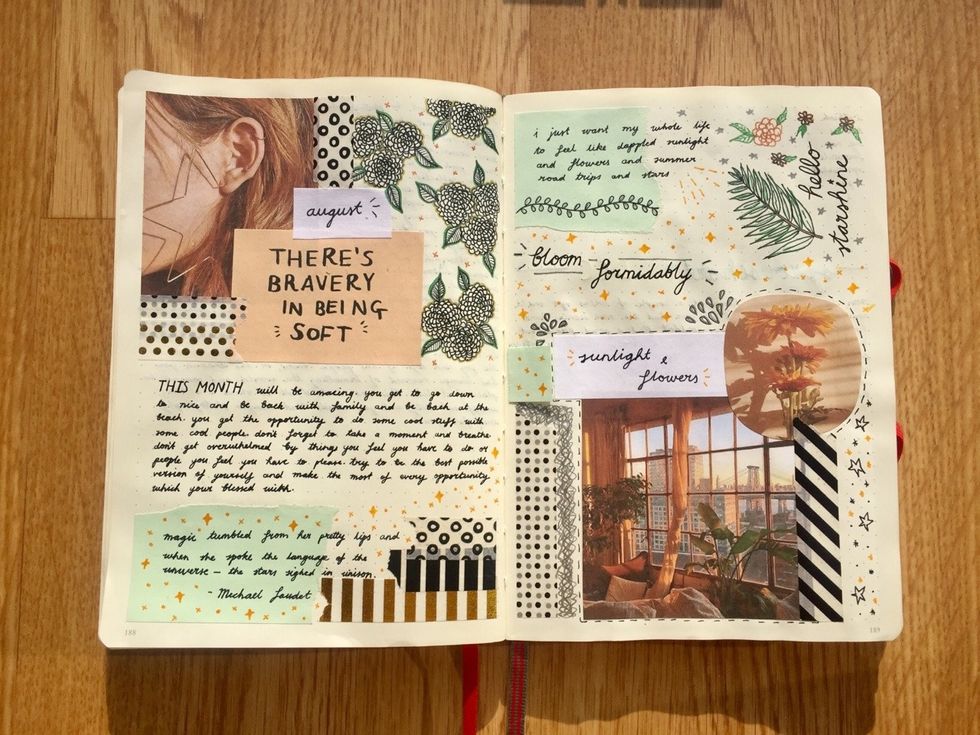 august
THERE'S
BRAVERY
IN BEING
SOFT
THIS MONTH will be amazing. you get to go down
to nice and be back with family and be back at the
beach. you get the opportunity to do some cool stuff with
some cool people. don't forget to take a moment and breathe
don't get overwhelmed by things you feel you have to do or
people you feel you have to please. try to be the best possible
version of yourself and make the most of every opportunity
which your blessed with.
magic tumbled from her pretty lips and
when she spoke the language of the
universe – the stars sighed in unison.
- Michael Faudet
188
i just want my whole life
to feel like dappled sunlight
and flowers and summer
road trips and stars
hello
starshine
bloom
formidably
sunlight &
flowers
189